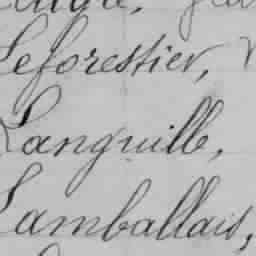 Leforestier,
Languille,
Lamballais,